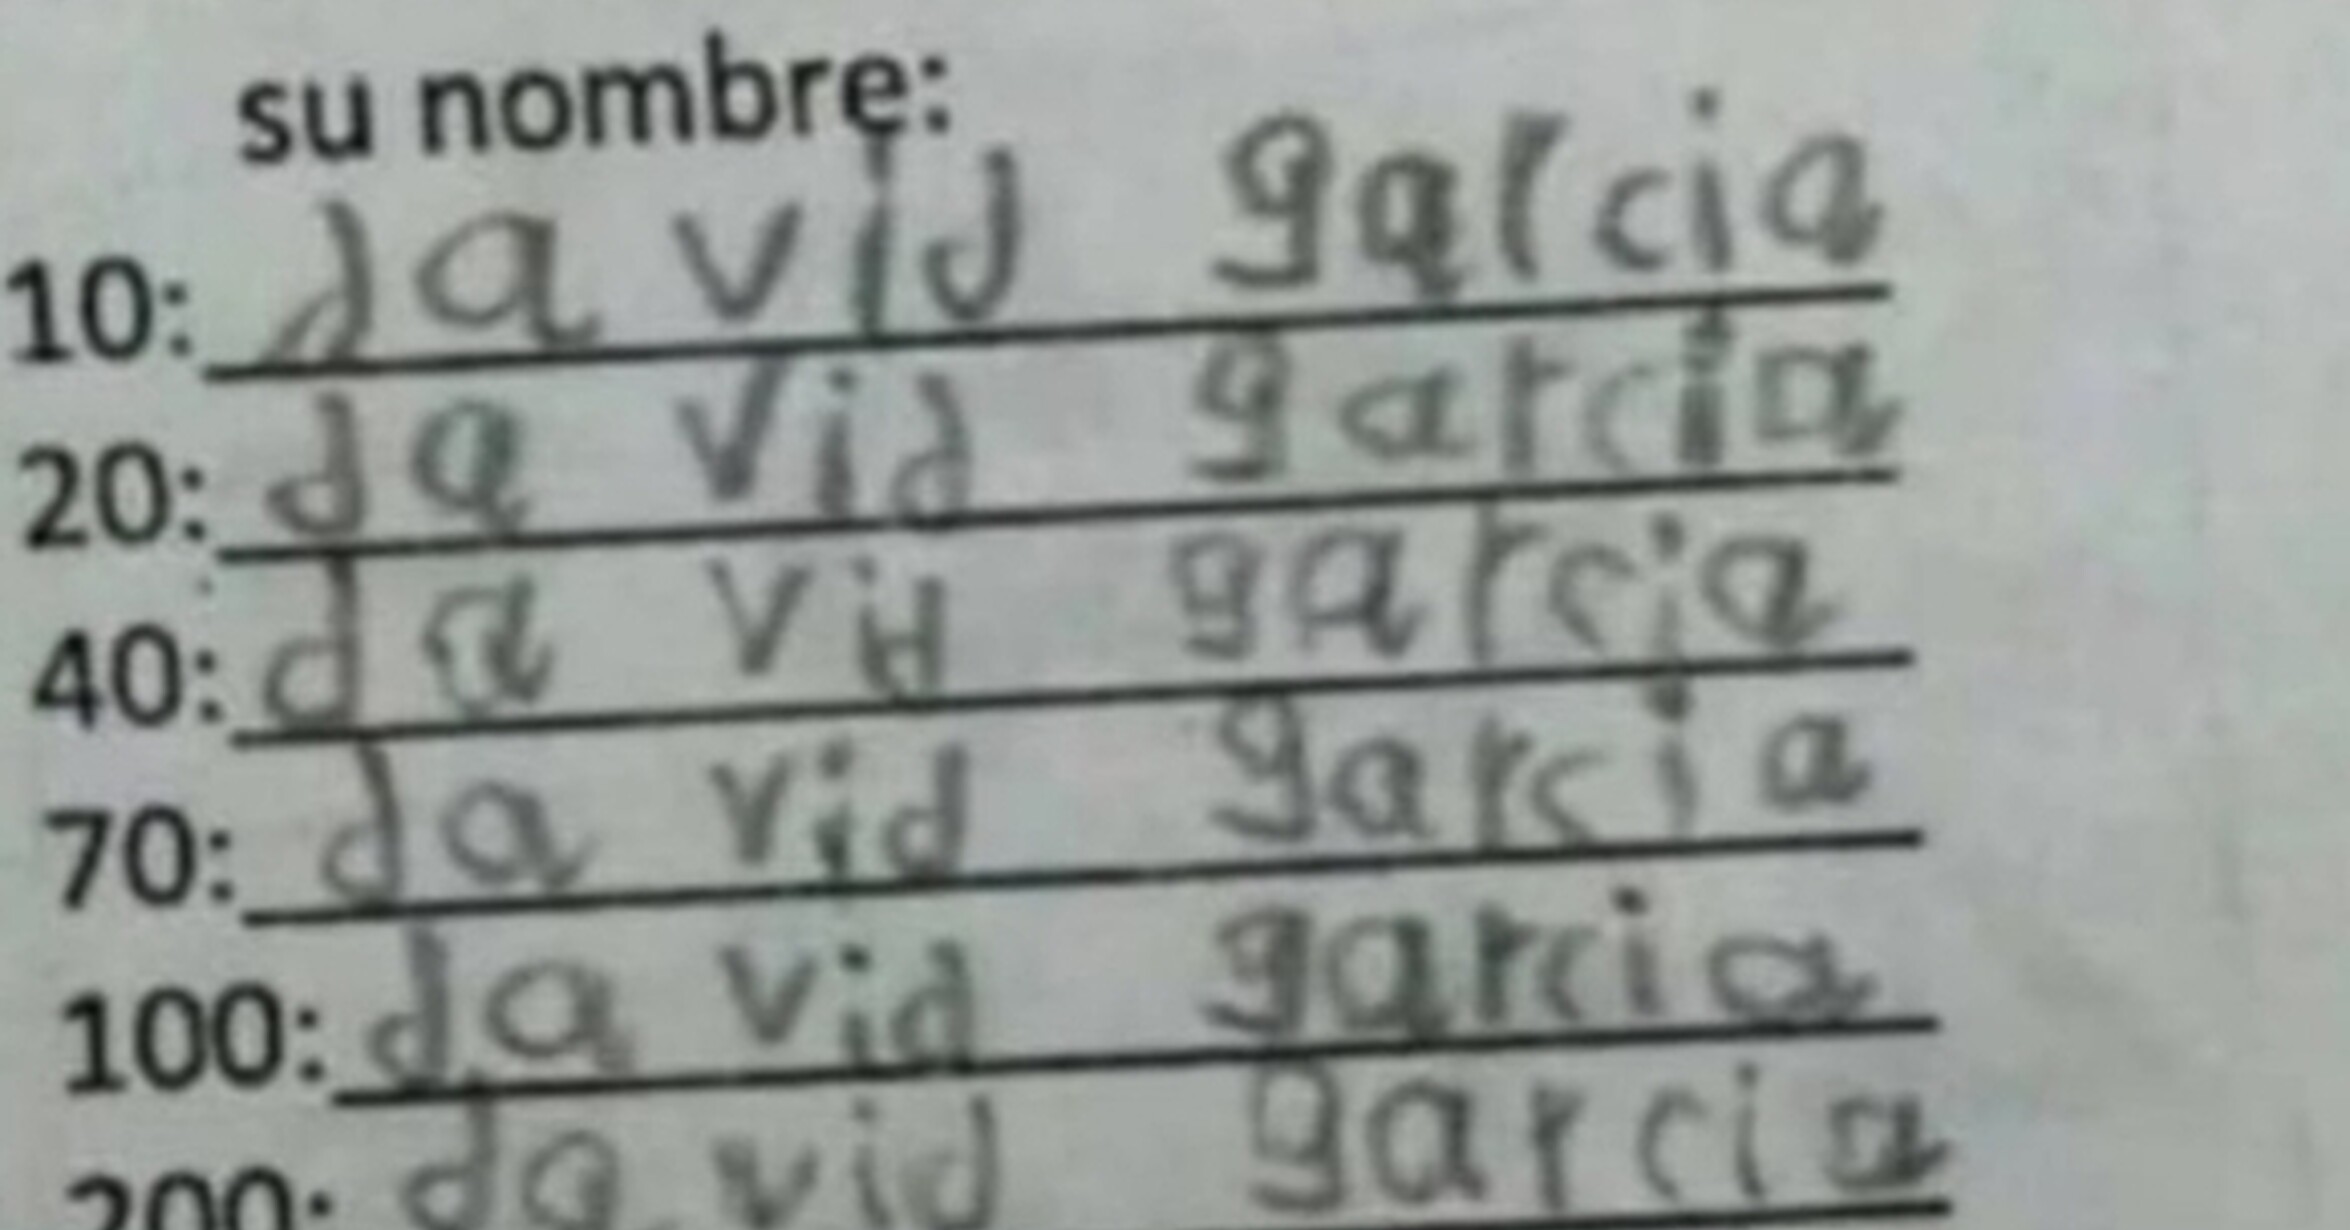 su nombre:
10: da vid garcia
20: da vid garcia
40: da vid garcia
70: da vid garcia
100: da vid garcia
200: da vid garcia